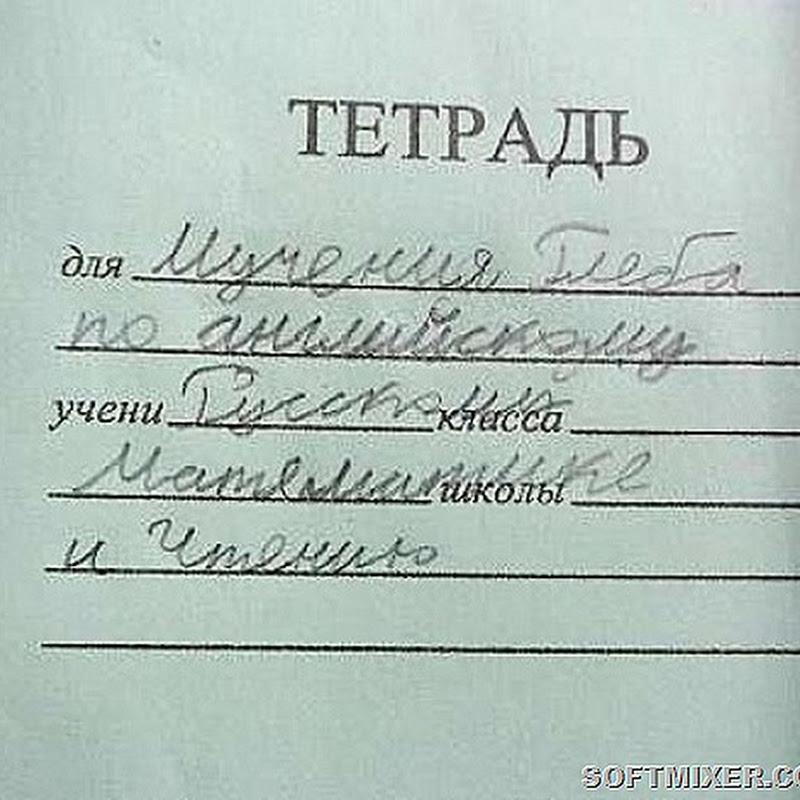 ТЕТРАДЬ
для Мучения Глеба
по английскому
учени Русскому класса
Математике школы
и Чтению
SOFTMIXER.CO